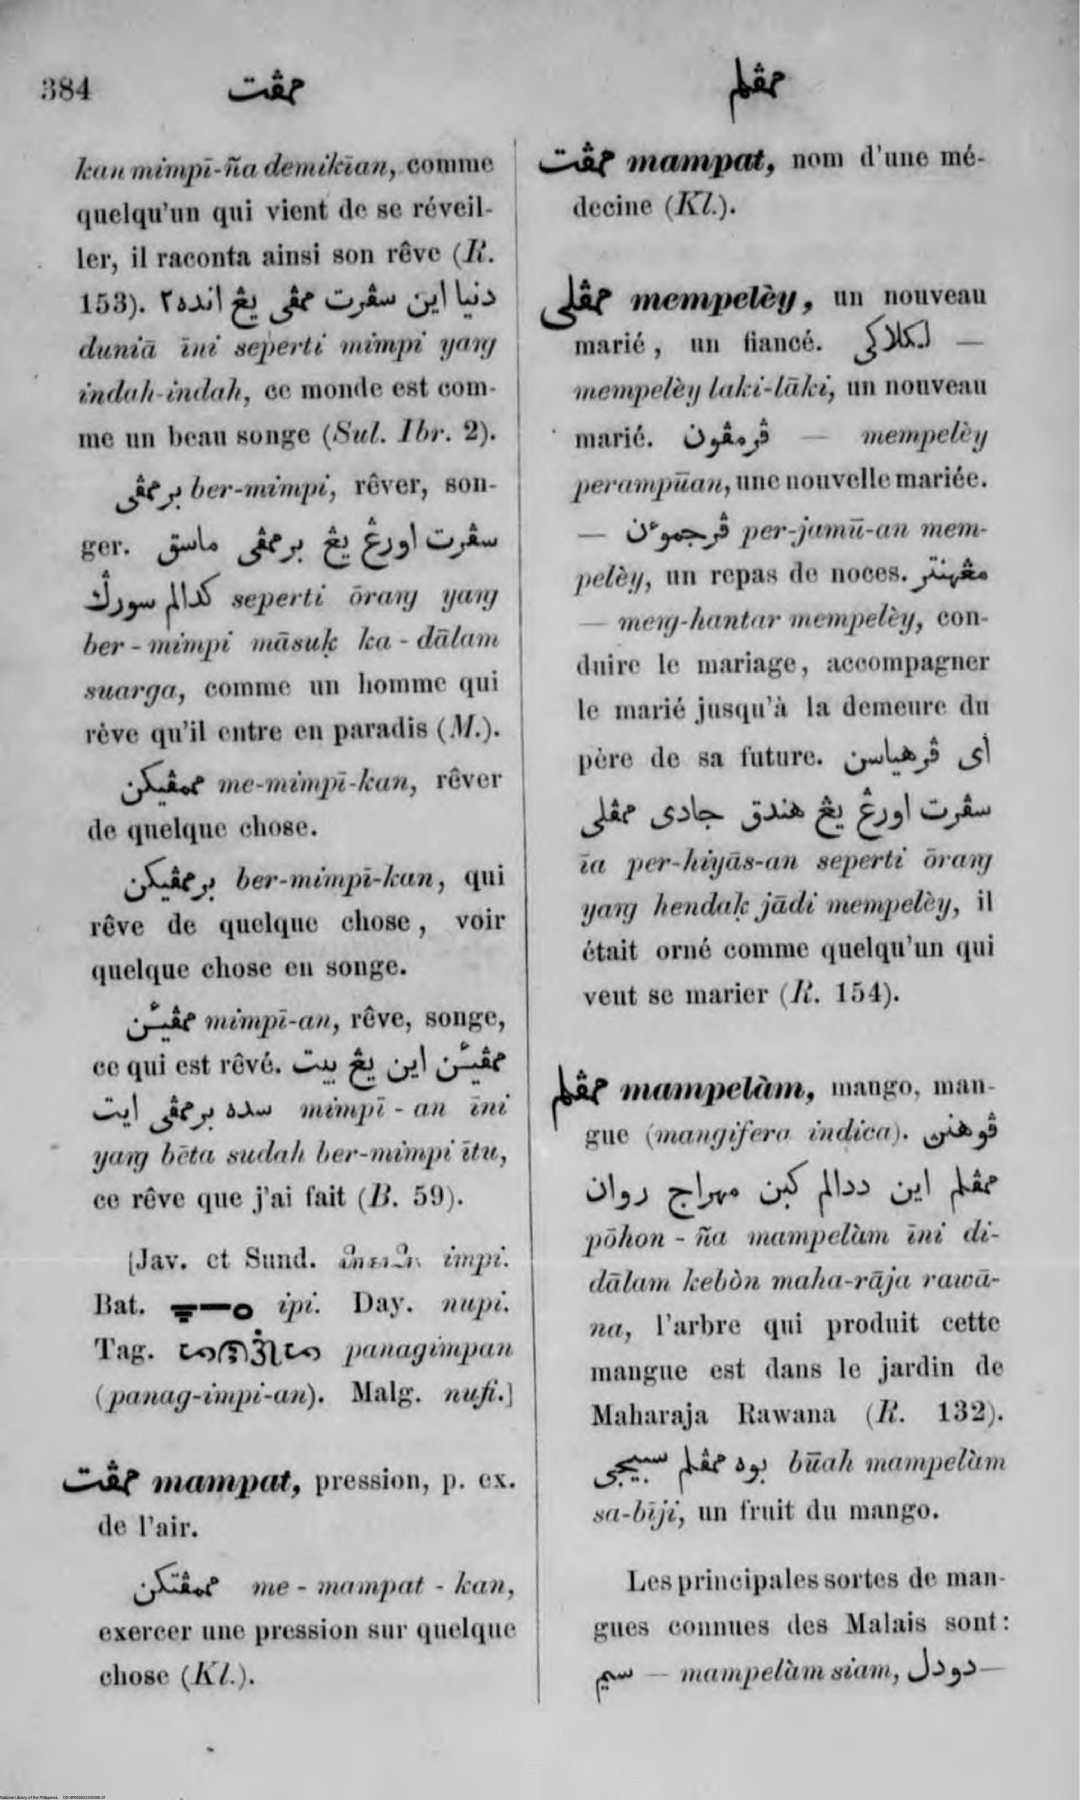 384 ممڤت ممڤلم
kan mimpī-ña demikīan, comme
quelqu'un qui vient de se réveil-
ler, il raconta ainsi son rêve (R.
153). دنيا اين سڤرت ممڤي يڠ انده٢
duniā īni seperti mimpi yaṙg
indah-indah, ce monde est com-
me un beau songe (Sul. Ibr. 2).
برممڤي ber-mimpi, rêver, son-
ger. سڤرت اورڠ يڠ برممڤي ماسق
كدالم سورڬ seperti ōraṙg yaṙg
ber-mimpi māsuḳ ka-dālam
suarga, comme un homme qui
rêve qu'il entre en paradis (M.).
ممڤيكن me-mimpī-kan, rêver
de quelque chose.
برممڤيكن ber-mimpī-kan, qui
rêve de quelque chose, voir
quelque chose en songe.
ممڤيئن mimpī-an, rêve, songe,
ce qui est rêvé. ممڤيئن اين يڠ بيت
سده برممڤي ايت mimpī-an īni
yaṙg bēta sudah ber-mimpi ītu,
ce rêve que j'ai fait (B. 59).
[Jav. et Sund. impi.
Bat. ipi. Day. nupi.
Tag. panagimpan
(panag-impi-an). Malg. nufi.]
ممڤت mampat, pression, p. ex.
de l'air.
ممڤتكن me-mampat-kan,
exercer une pression sur quelque
chose (Kl.).
ممڤت mampat, nom d'une mé-
decine (Kl.).
ممڤلي mempelèy, un nouveau
marié, un fiancé. لكلاكي —
mempelèy laki-lāki, un nouveau
marié. ڤرمڤون — mempelèy
perampūan, une nouvelle mariée.
— ڤرجموءن per-jamū-an mem-
pelèy, un repas de noces. مڠهنتر
— meṙg-hantar mempelèy, con-
duire le mariage, accompagner
le marié jusqu'à la demeure du
père de sa future. اي ڤرهياسن
سڤرت اورڠ يڠ هندق جادي ممڤلي
īa per-hiyās-an seperti ōraṙg
yaṙg hendaḳ jādi mempelèy, il
était orné comme quelqu'un qui
veut se marier (R. 154).
ممڤلم mampelàm, mango, man-
gue (mangifera indica). ڤوهنڽ
ممڤلم اين ددالم كبن مهراج روان
pōhon-ña mampelàm īni di-
dālam kebòn maha-rāja rawā-
na, l'arbre qui produit cette
mangue est dans le jardin de
Maharaja Rawana (R. 132).
بوه ممڤلم سبيجي būah mampelàm
sa-bīji, un fruit du mango.
Les principales sortes de man-
gues connues des Malais sont:
سيم — mampelàm siam, دودل —